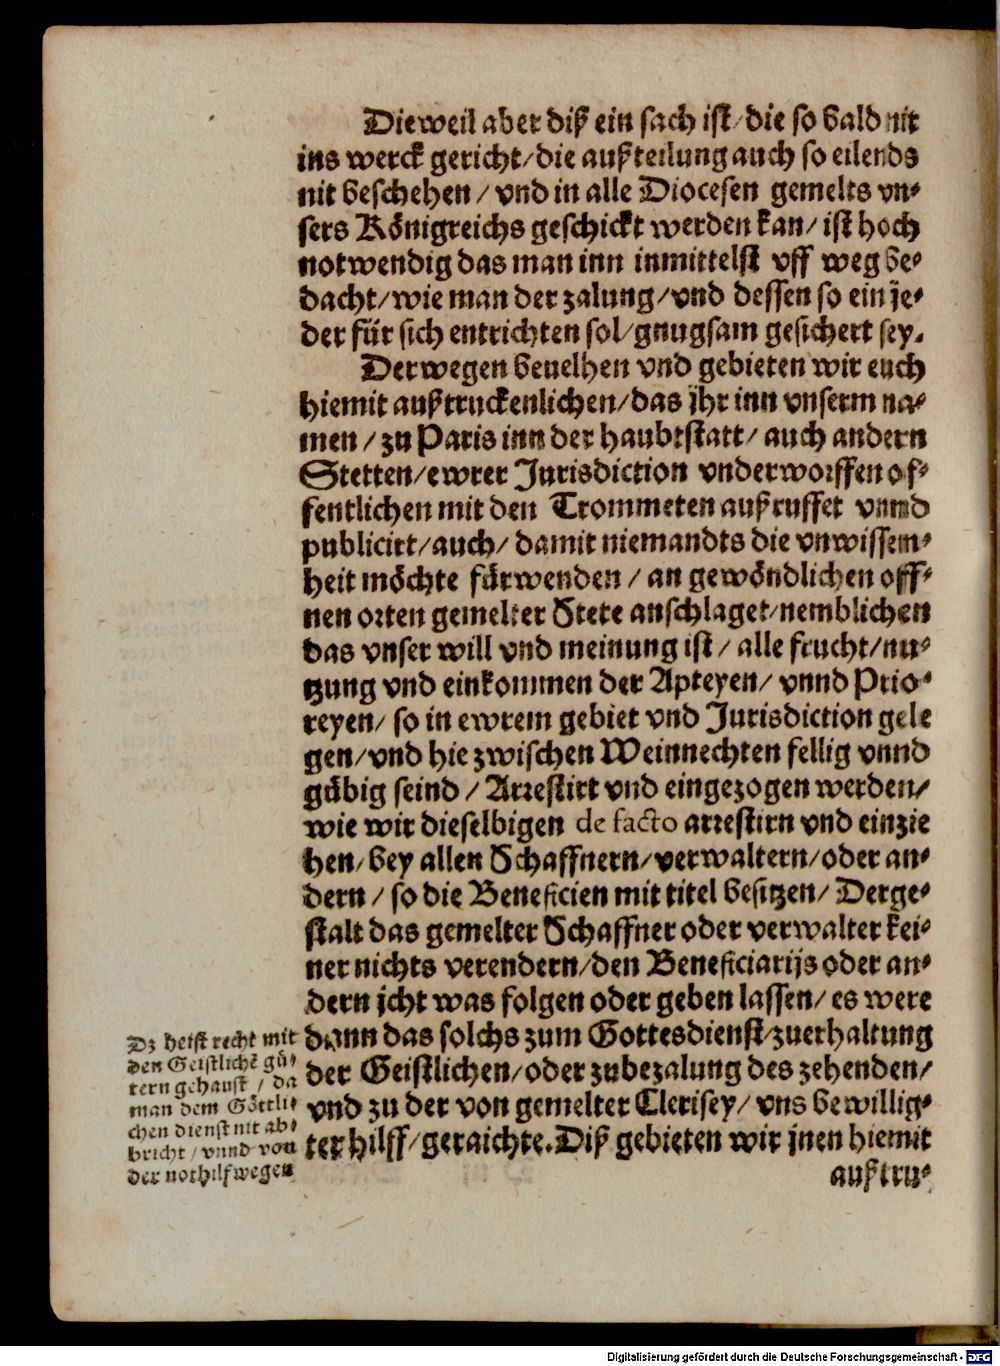 Dieweil aber diß ein sach ist/die so bald nit
ins werck gericht/die außteilung auch so eilends
nit beschehen/vnd in alle Diocesen gemelts vn-
sers Königreichs geschickt werden kan/ist hoch
notwendig das man inn inmittelst vff weg be-
dacht/wie man der zalung/vnd dessen so ein je-
der für sich entrichten sol/gnugsam gesichert sey.
Derwegen beuelhen vnd gebieten wir euch
hiemit außtruckenlichen/das jhr inn vnserm na-
men/zu Paris inn der haubtstatt/auch andern
Stetten/ewrer Jurisdiction vnderworffen of-
fentlichen mit den Trommeten außruffet vnnd
publicirt/auch/damit niemandts die vnwissen-
heit möchte fürwenden/an gewöndlichen off-
nen orten gemelter Stete anschlaget/nemblichen
das vnser will vnd meinung ist/alle frucht/nu-
tzung vnd einkommen der Apteyen/vnnd Prio-
reyen/so in ewrem gebiet vnd Jurisdiction gele
gen/vnd hie zwischen Weinnechten fellig vnnd
gübig seind/Arrestirt vnd eingezogen werden/
wie wir dieselbigen de facto arrestirn vnd einzie
hen/bey allen Schaffnern/verwaltern/oder an-
dern/so die Beneficien mit titel besitzen/Derge-
stalt das gemelter Schaffner oder verwalter kei-
ner nichts verendern/den Beneficiarijs oder an-
dern jcht was folgen oder geben lassen/es were
dann das solchs zum Gottesdienst/zuerhaltung
der Geistlichen/oder zubezalung des zehenden/
vnd zu der von gemelter Clerisey/vns bewillig-
ter hilff/geraichte. Diß gebieten wir jnen hiemit
außtru-
Dz heist recht mit
den Geistlichẽ gü-
tern gehaust/da
man dem Göttli-
chen dienst nit ab-
bricht/vnnd von
der nothilf wegen
Digitalisierung gefördert durch die Deutsche Forschungsgemeinschaft - DFG